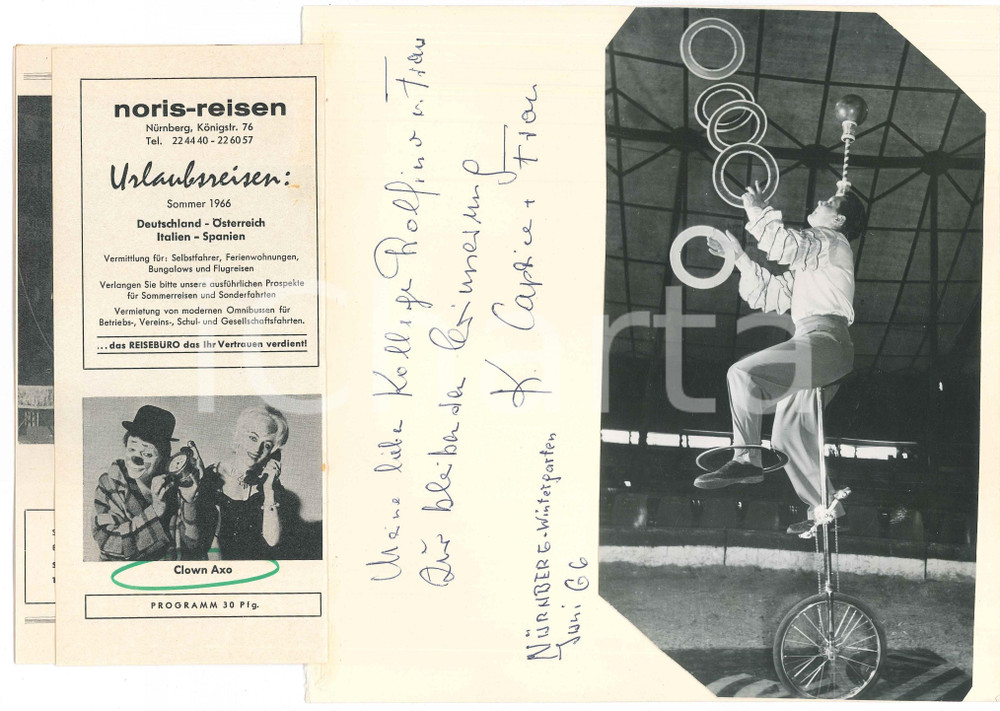 noris-reisen
Nürnberg, Königstr. 76
Tel. 22 44 40 - 22 60 57
Urlaubsreisen:
Sommer 1966
Deutschland - Österreich
Italien - Spanien
Vermittlung für: Selbstfahrer, Ferienwohnungen,
Bungalows und Flugreisen
Verlangen Sie bitte unsere ausführlichen Prospekte
für Sommerreisen und Sonderfahrten
Vermietung von modernen Omnibussen für
Betriebs-, Vereins-, Schul- und Gesellschaftsfahrten.
...das REISEBÜRO das Ihr Vertrauen verdient!
Clown Axo
PROGRAMM 30 Pfg.
Meine lieben Kollege Rolfino u. Frau
Zur bleibenden Erinnerung
K. Captice + Frau
NÜRNBERG-Wintergarten
Juni 66